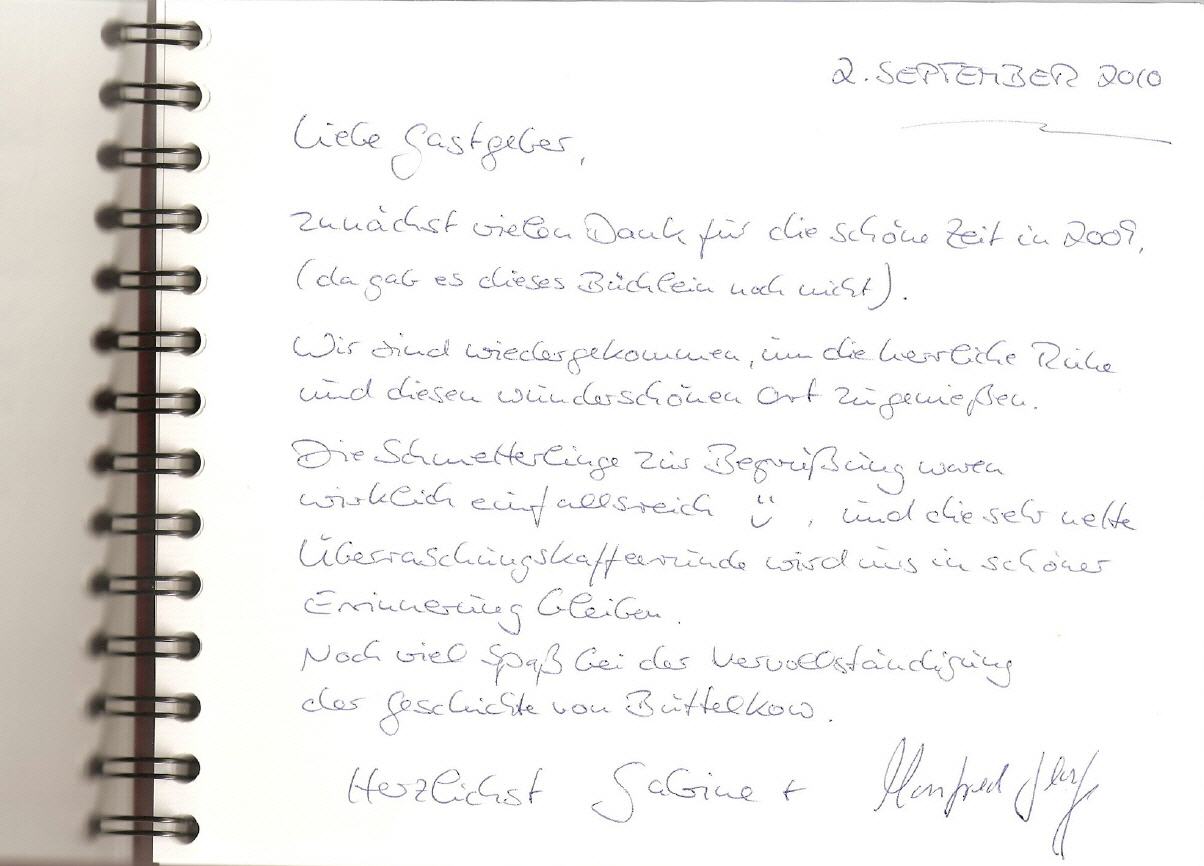 2. SEPTEMBER 2010
Liebe Gastgeber,
zunächst vielen Dank für die schöne Zeit in 2009,
(da gab es dieses Büchlein noch nicht).
Wir sind wiedergekommen, um die herrliche Ruhe
und diesen wunderschönen Ort zu genießen.
Die Schmetterlinge zur Begrüßung waren
wirklich einfallsreich , und die sehr nette
Überraschungskaffeerunde wird uns in schöner
Erinnerung bleiben.
Noch viel Spaß bei der Vervollständigung
der Geschichte von Büttelkow.
Herzlichst Sabine + Manfred